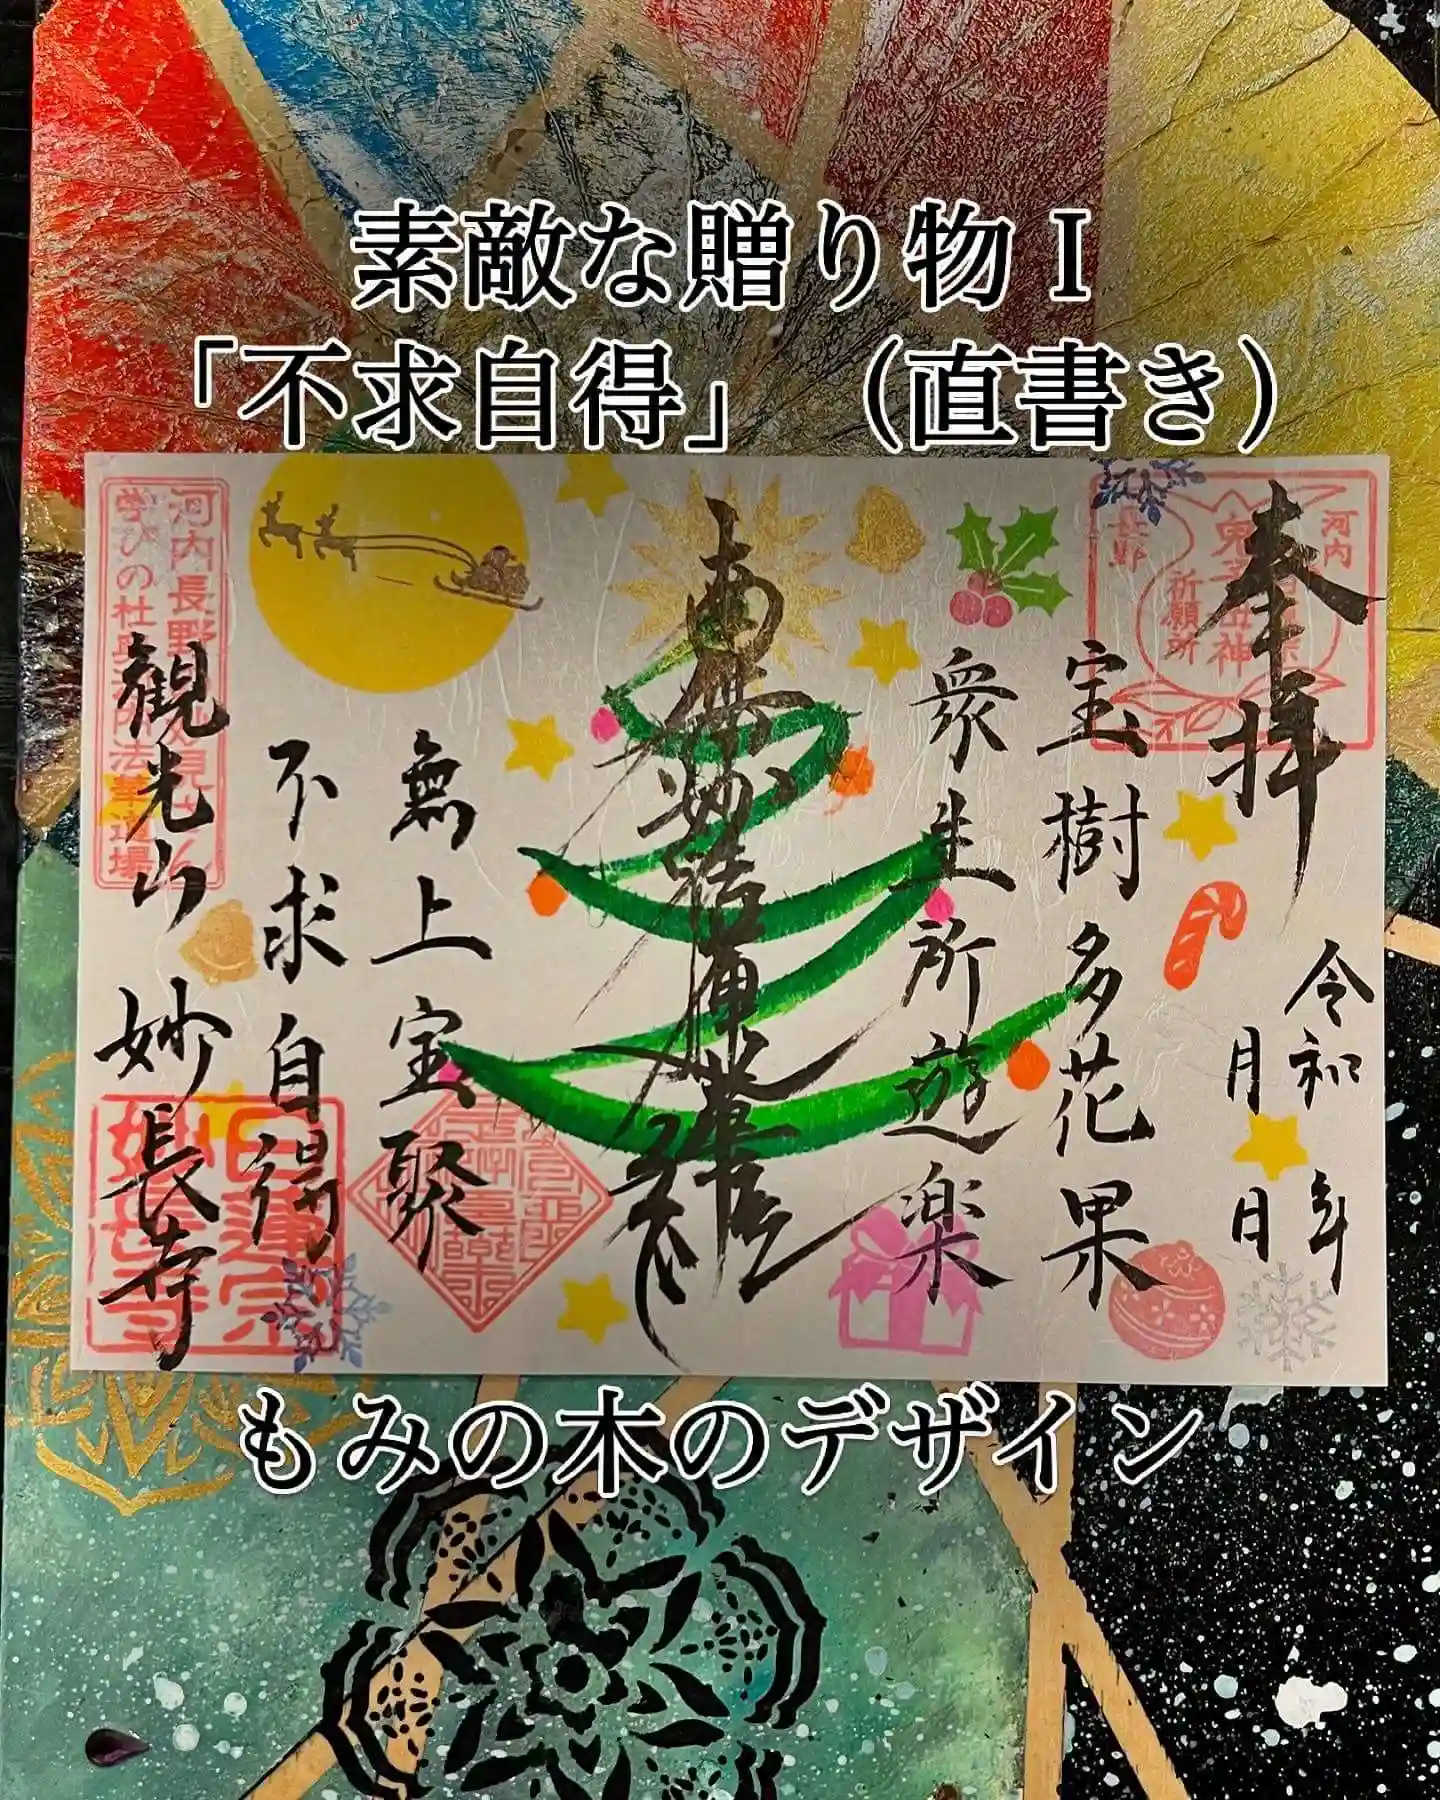 素敵な贈り物Ⅰ
「不求自得」（直書き）
奉拝
令和 年
月 日
宝樹多花果
衆生所遊楽
南無妙法蓮華経
無上宝聚
不求自得
観光山 妙長寺
河内
長野
祈願所
河内長野
学びの杜
法華道場
日蓮宗
妙長寺
もみの木のデザイン